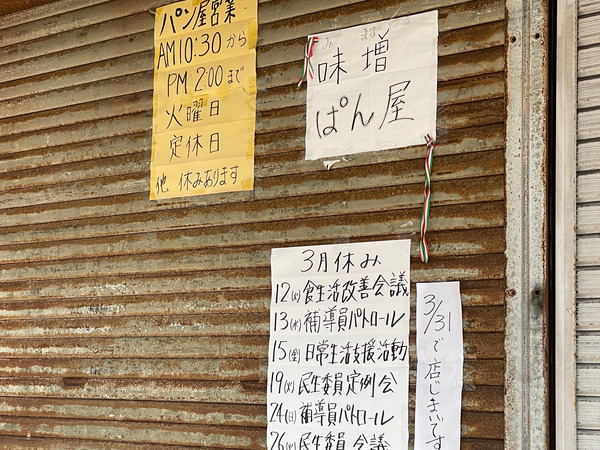 パン屋営業
AM10:30から
PM2:00まで
火曜日
定休日
他 休みあります
み ます
味増
ぱん屋
3月休み
12(火)食生活改善会議
13(水)補導員パトロール
15(金)日常生活支援活動
19(火)民生委員定例会
24(日)補導員パトロール
26(火)民生委員会議
3/31で店じまいです